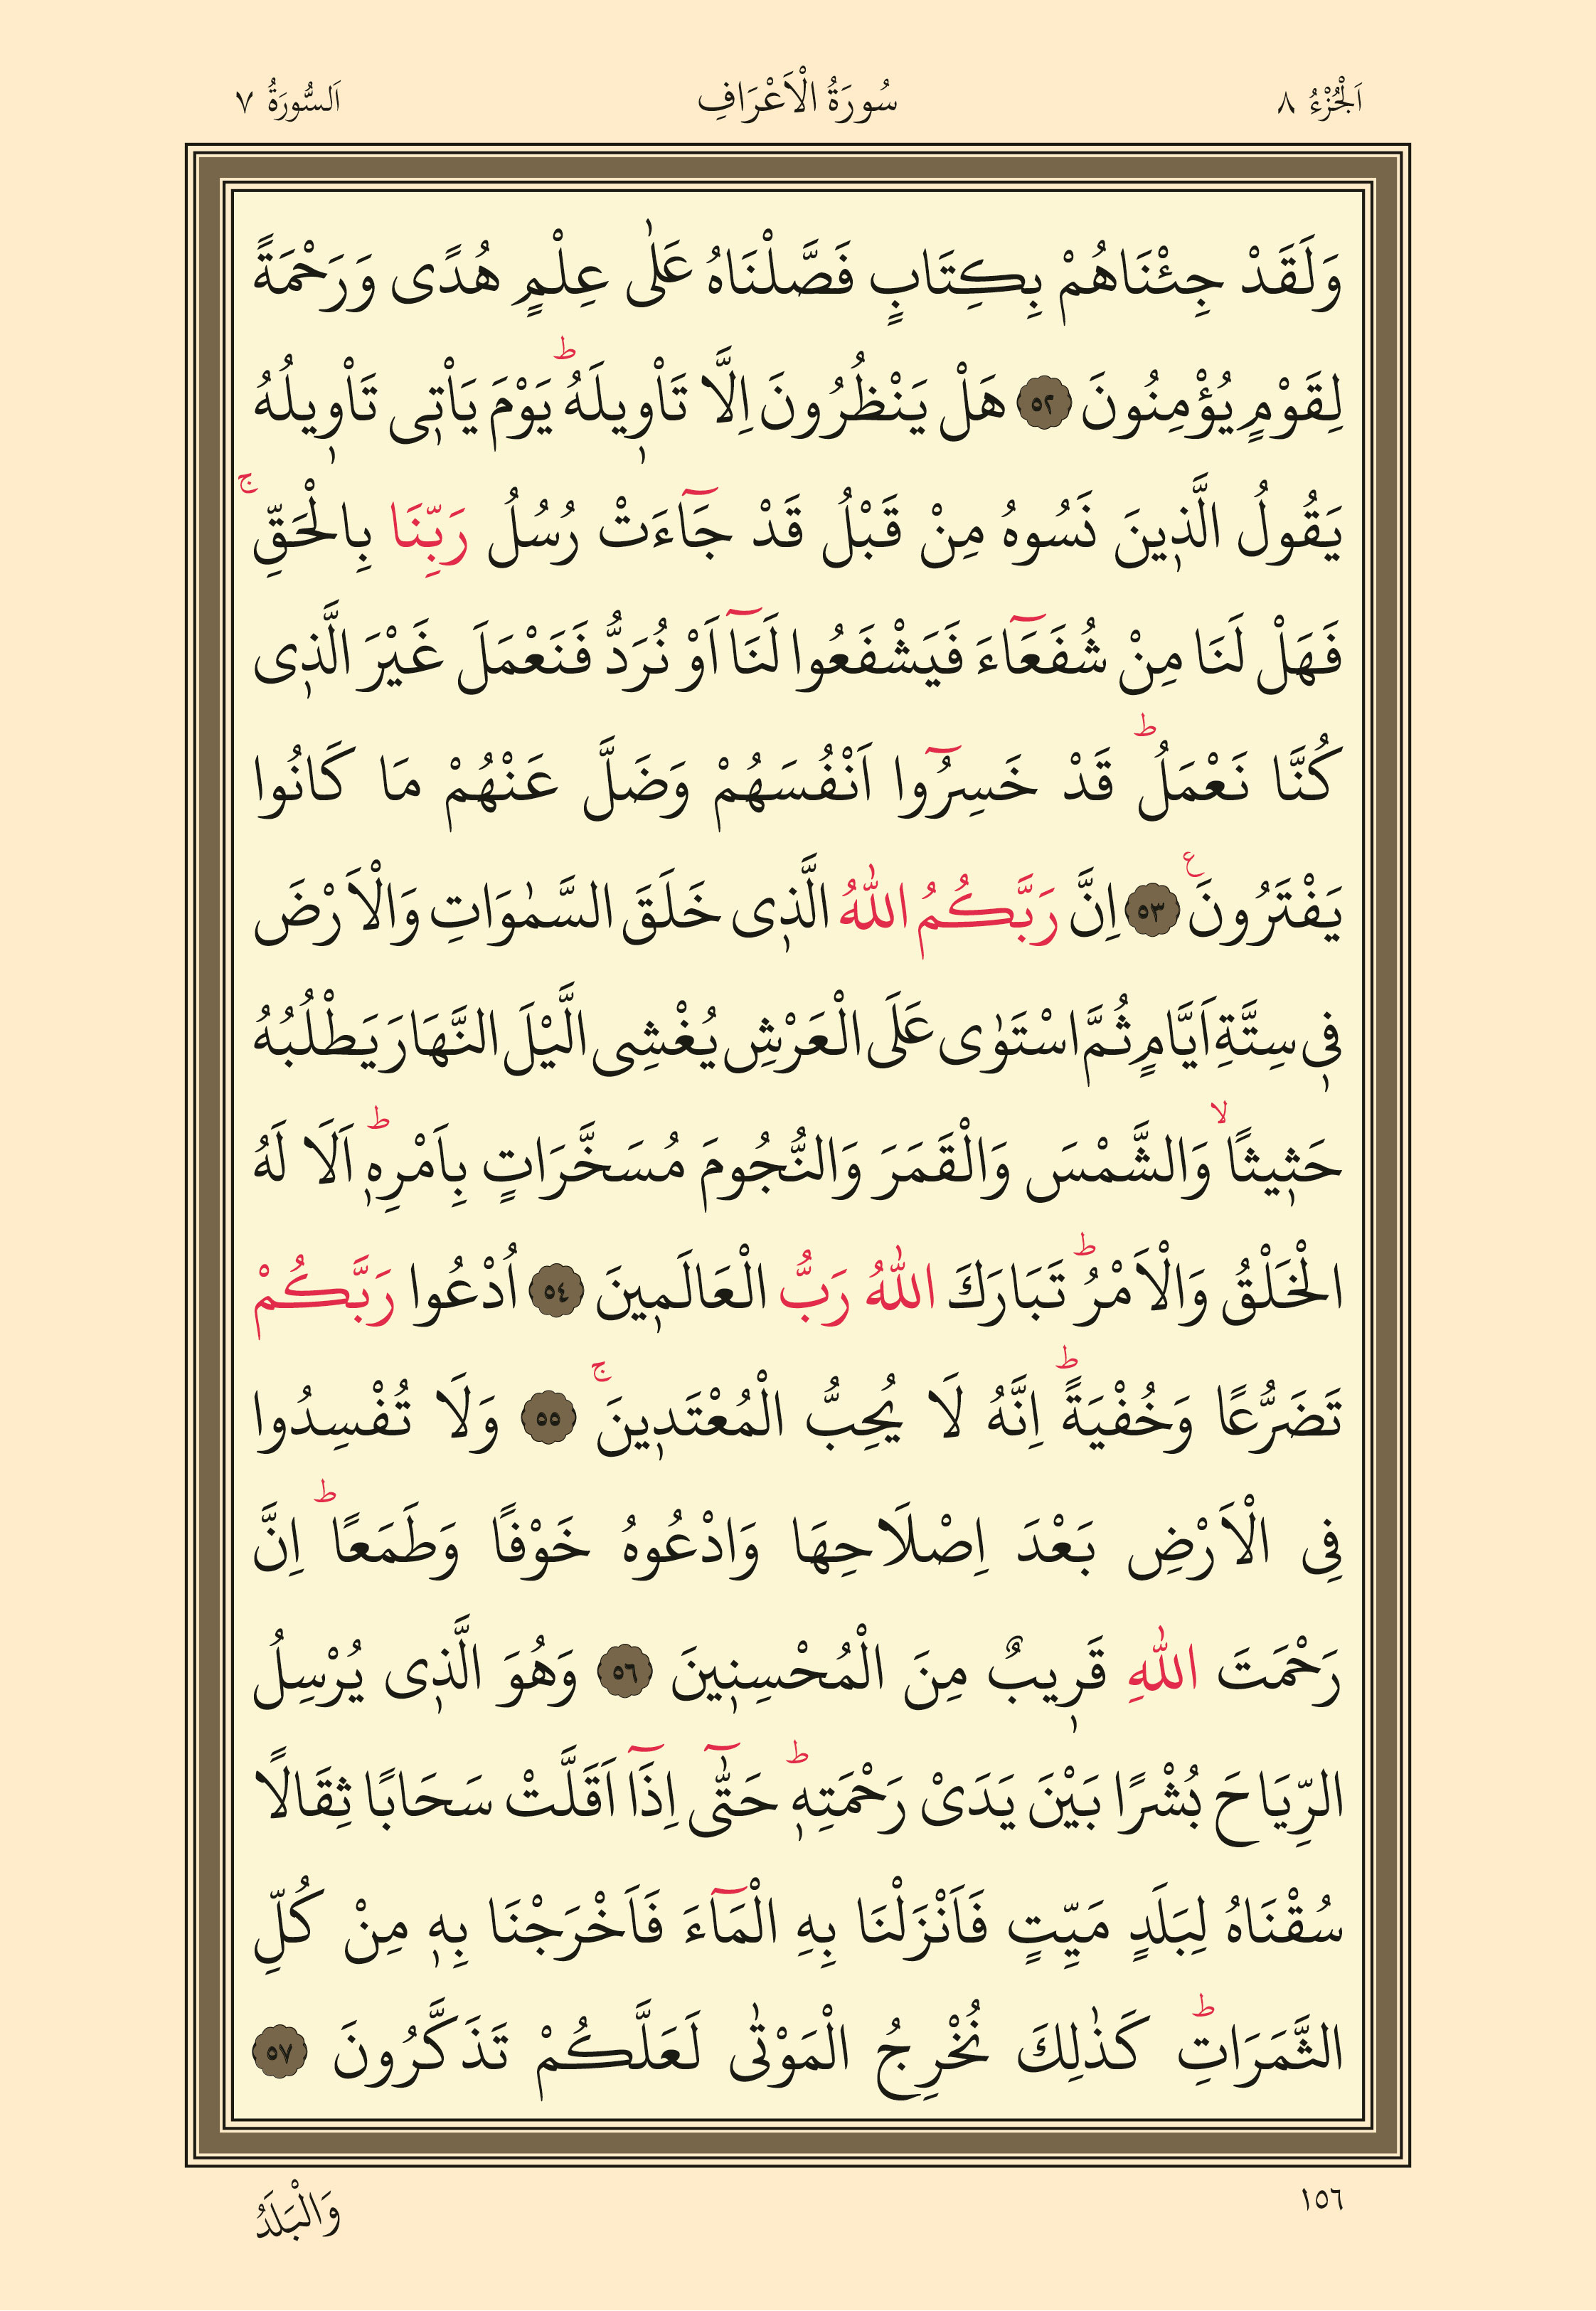 اَلْجُزْءُ ٨ سُورَةُ الْاَعْرَافِ اَلسُّورَةُ ٧
وَلَقَدْ جِئْنَاهُمْ بِكِتَابٍ فَصَّلْنَاهُ عَلٰى عِلْمٍ هُدًى وَرَحْمَةً
لِقَوْمٍ يُؤْمِنُونَ ٥٢ هَلْ يَنْظُرُونَ اِلَّا تَاْوٖيلَهُۜ يَوْمَ يَاْتٖى تَاْوٖيلُهُ
يَقُولُ الَّذٖينَ نَسُوهُ مِنْ قَبْلُ قَدْ جَٓاءَتْ رُسُلُ رَبِّنَا بِالْحَقِّۚ
فَهَلْ لَنَا مِنْ شُفَعَٓاءَ فَيَشْفَعُوا لَنَٓا اَوْ نُرَدُّ فَنَعْمَلَ غَيْرَ الَّذٖى
كُنَّا نَعْمَلُۜ قَدْ خَسِرُٓوا اَنْفُسَهُمْ وَضَلَّ عَنْهُمْ مَا كَانُوا
يَفْتَرُونَࣖ ٥٣ اِنَّ رَبَّكُمُ اللّٰهُ الَّذٖى خَلَقَ السَّمٰوَاتِ وَالْاَرْضَ
فٖى سِتَّةِ اَيَّامٍ ثُمَّ اسْتَوٰى عَلَى الْعَرْشِ يُغْشِى الَّيْلَ النَّهَارَ يَطْلُبُهُ
حَثٖيثًاۙ وَالشَّمْسَ وَالْقَمَرَ وَالنُّجُومَ مُسَخَّرَاتٍ بِاَمْرِهٖۜ اَلَا لَهُ
الْخَلْقُ وَالْاَمْرُۜ تَبَارَكَ اللّٰهُ رَبُّ الْعَالَمٖينَ ٥٤ اُدْعُوا رَبَّكُمْ
تَضَرُّعًا وَخُفْيَةًۜ اِنَّهُ لَا يُحِبُّ الْمُعْتَدٖينَۚ ٥٥ وَلَا تُفْسِدُوا
فِى الْاَرْضِ بَعْدَ اِصْلَاحِهَا وَادْعُوهُ خَوْفًا وَطَمَعًاۜ اِنَّ
رَحْمَتَ اللّٰهِ قَرٖيبٌ مِنَ الْمُحْسِنٖينَ ٥٦ وَهُوَ الَّذٖى يُرْسِلُ
الرِّيَاحَ بُشْرًا بَيْنَ يَدَىْ رَحْمَتِهٖۜ حَتّٰٓى اِذَٓا اَقَلَّتْ سَحَابًا ثِقَالًا
سُقْنَاهُ لِبَلَدٍ مَيِّتٍ فَاَنْزَلْنَا بِهِ الْمَٓاءَ فَاَخْرَجْنَا بِهٖ مِنْ كُلِّ
الثَّمَرَاتِۜ كَذٰلِكَ نُخْرِجُ الْمَوْتٰى لَعَلَّكُمْ تَذَكَّرُونَ ٥٧
١٥٦ وَالْبَلَدُ